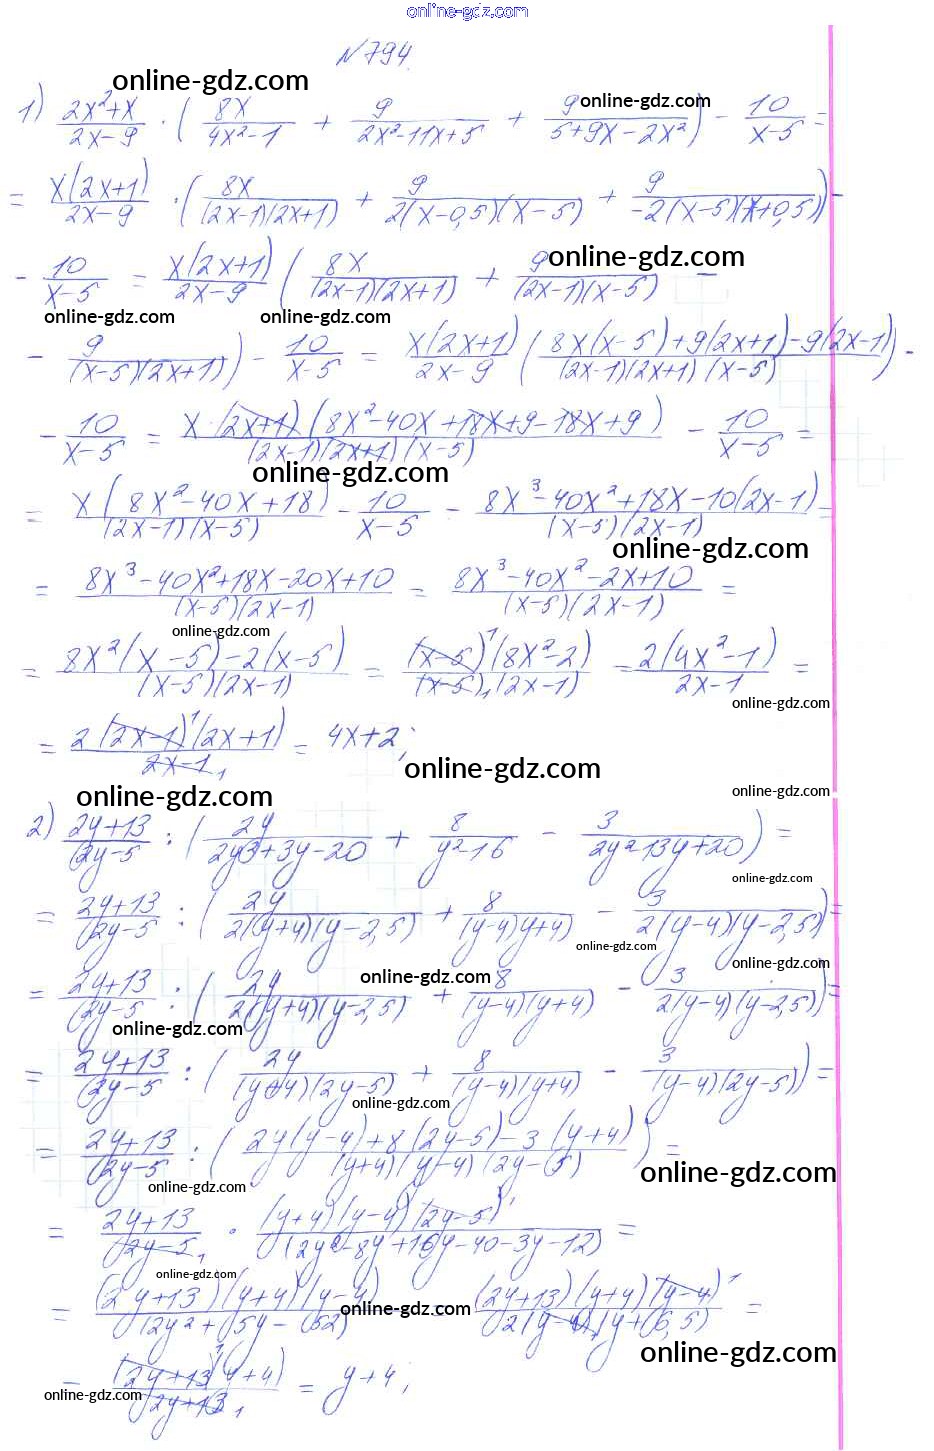 online-gdz.com
N 794
online-gdz.com
1) (2x²+x)/(2x-9) · (8x/(4x²-1) + 9/(2x²-11x+5) + 9/(5+9x-2x²)) - 10/(x-5) =
online-gdz.com
= x(2x+1)/(2x-9) · (8x/((2x-1)(2x+1)) + 9/(2(x-0,5)(x-5)) + 9/(-2(x-5)(x+0,5))) -
online-gdz.com
- 10/(x-5) = x(2x+1)/(2x-9) (8x/((2x-1)(2x+1)) + 9/((2x-1)(x-5)) -
online-gdz.com online-gdz.com
- 9/((x-5)(2x+1))) - 10/(x-5) = x(2x+1)/(2x-9) (8x(x-5)+9(2x+1)-9(2x-1))/((2x-1)(2x+1)(x-5)) -
- 10/(x-5) = x·(2x+1)(8x²-40x+18x+9-18x+9)/((2x-1)(2x+1)(x-5)) - 10/(x-5) =
online-gdz.com
= x(8x²-40x+18)/((2x-1)(x-5)) - 10/(x-5) - (8x³-40x²+18x-10(2x-1))/((x-5)(2x-1)) =
online-gdz.com
= (8x³-40x²+18x-20x+10)/((x-5)(2x-1)) = (8x³-40x²-2x+10)/((x-5)(2x-1)) =
online-gdz.com
= (8x²(x-5)-2(x-5))/((x-5)(2x-1)) = (x-5)¹(8x²-2)/((x-5)₁(2x-1)) = 2(4x²-1)/(2x-1) =
online-gdz.com
= 2(2x-1)¹(2x+1)/(2x-1)₁ = 4x+2;
online-gdz.com
online-gdz.com
online-gdz.com
2) (2y+13)/(2y-5) : (2y/(2y3+3y-20) + 8/(y²-16) - 3/(2y²-13y+20)) =
online-gdz.com
= (2y+13)/(2y-5) : (2y/(2(y+4)(y-2,5)) + 8/((y-4)y+4) - 3/(2(y-4)(y-2,5))) =
online-gdz.com
online-gdz.com
online-gdz.com
= (2y+13)/(2y-5) : (2y/(2(y+4)(y-2,5)) + 8/((y-4)(y+4)) - 3/(2(y-4)(y-2,5))) =
online-gdz.com
= (2y+13)/(2y-5) : (2y/((y+4)(2y-5)) + 8/((y-4)(y+4)) - 3/((y-4)(2y-5))) =
online-gdz.com
= (2y+13)/(2y-5) : (2y(y-4)+8(2y-5)-3(y+4))/((y+4)(y-4)(2y-5)) =
online-gdz.com
online-gdz.com
= (2y+13)/(2y-5)₁ · (y+4)(y-4)(2y-5)¹/(2y²-8y+16y-40-3y-12) =
online-gdz.com
= (2y+13)(y+4)(y-4)/(2y²+5y-52) = (2y+13)(y+4)(y-4)¹/(2(y-4)₁(y+6,5)) =
online-gdz.com
online-gdz.com
= (2y+13)¹(y+4)/(2y+13)₁ = y+4;
online-gdz.com